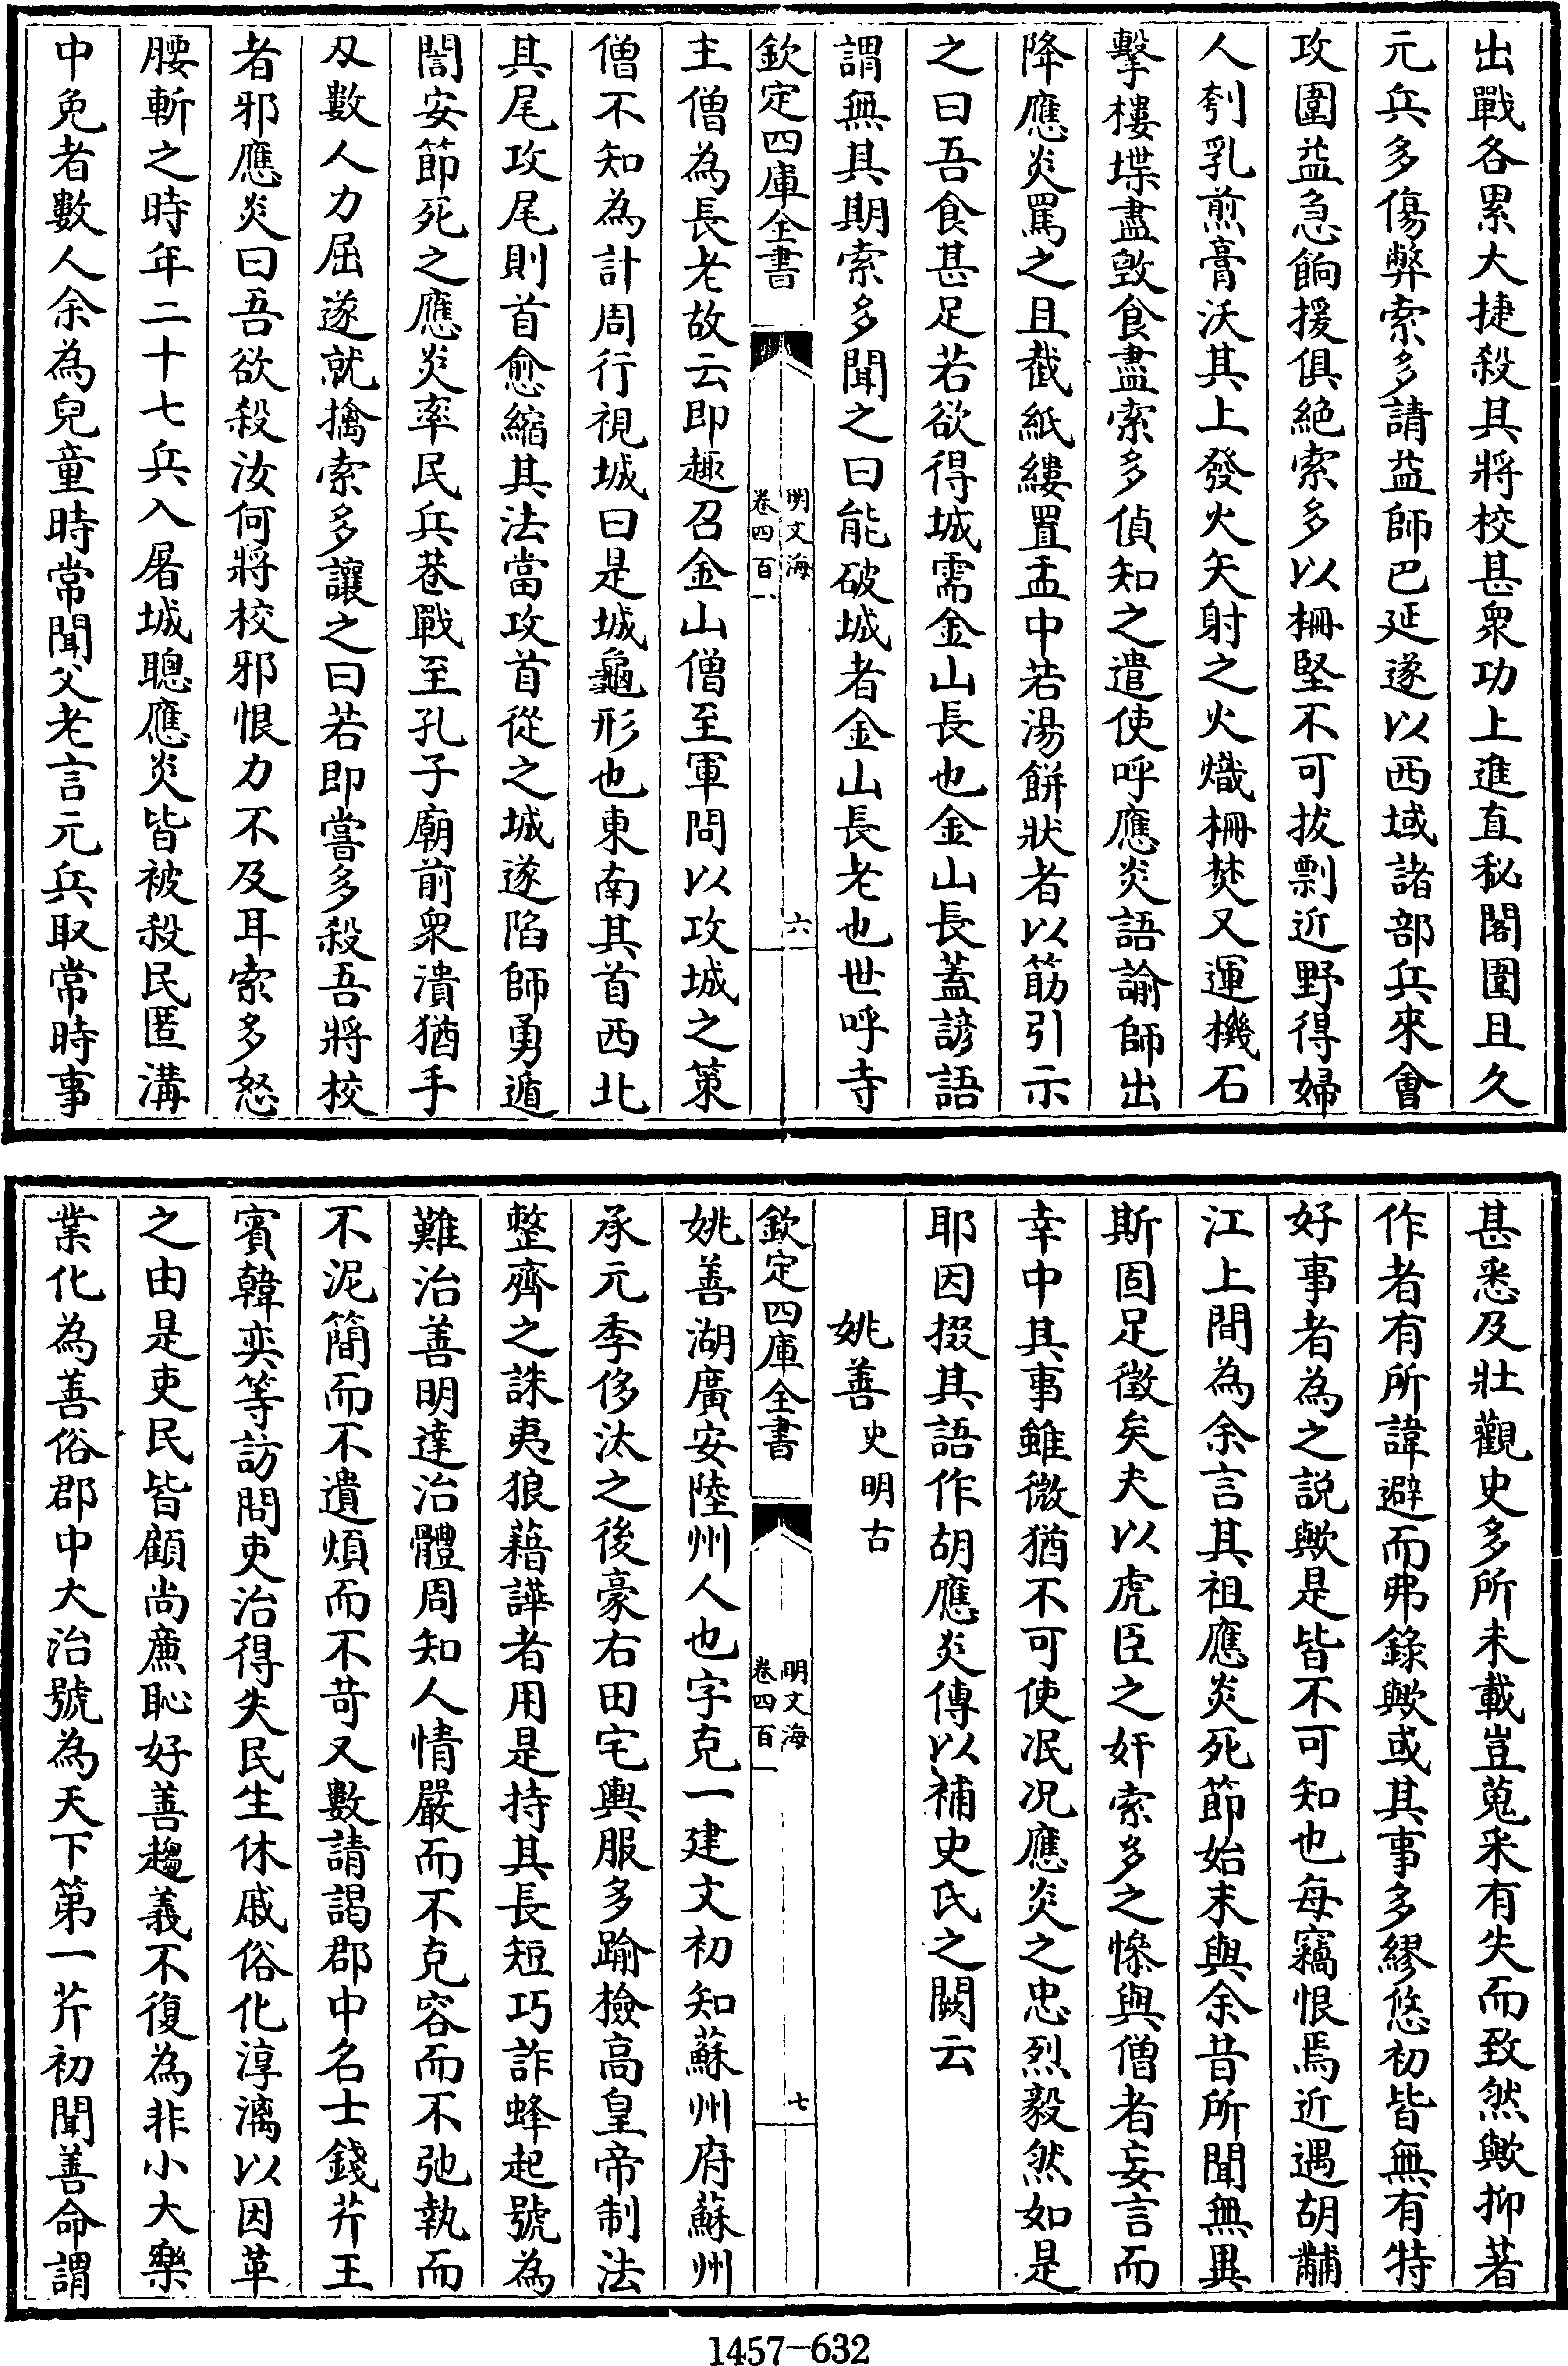 出戰各累大捷殺其將校甚衆功上進直秘閣圍且久
元兵多傷弊索多請益師巴延遂以西域諸部兵來會
攻圍益急餉援俱絶索多以柵堅不可拔剽近野得婦
人刳乳煎膏沃其上發火矢射之火熾柵焚又運機石
擊樓堞盡毁食盡索多偵知之遣使呼應炎語諭師出
降應炎罵之且截紙縷置盂中若湯餅狀者以筯引示
之曰吾食甚足若欲得城需金山長也金山長蓋諺語
謂無其期索多聞之曰能破城者金山長老也世呼寺
欽定四庫全書
明文海
卷四百一
六
主僧為長老故云即趣召金山僧至軍問以攻城之策
僧不知為計周行視城曰是城龜形也東南其首西北
其尾攻尾則首愈縮其法當攻首從之城遂陷師勇遁
誾安節死之應炎率民兵巷戰至孔子廟前衆潰猶手
刄數人力屈遂就擒索多讓之曰若即嘗多殺吾將校
者邪應炎曰吾欲殺汝何將校邪恨力不及耳索多怒
腰斬之時年二十七兵入屠城聰應炎皆被殺民匿溝
中免者數人余為兒童時常聞父老言元兵取常時事
甚悉及壯觀史多所未載豈蒐采有失而致然歟抑著
作者有所諱避而弗錄歟或其事多繆悠初皆無有特
好事者為之説歟是皆不可知也每竊恨焉近遇胡黼
江上間為余言其祖應炎死節始末與余昔所聞無異
斯固足徵矣夫以虎臣之奸索多之慘與僧者妄言而
幸中其事雖微猶不可使泯况應炎之忠烈毅然如是
耶因掇其語作胡應炎傳以補史氏之闕云
姚善 史明古
欽定四庫全書
明文海
卷四百一
七
姚善湖廣安陸州人也字克一建文初知蘇州府蘇州
承元季侈汰之後豪右田宅輿服多踰檢高皇帝制法
整齊之誅夷狼藉譁者用是持其長短巧詐蜂起號為
難治善明達治體周知人情嚴而不克容而不弛執而
不泥簡而不遺煩而不苛又數請謁郡中名士錢芹王
賓韓奕等訪問吏治得失民生休戚俗化淳漓以因革
之由是吏民皆顧尚廉恥好善趨義不復為非小大樂
業化為善俗郡中大治號為天下第一芹初聞善命謂
1457-632